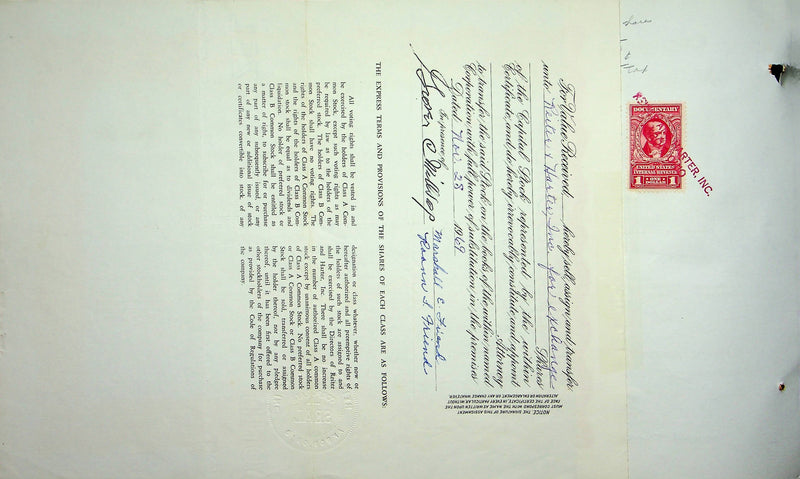 For Value Received, hereby sell, assign and transfer
unto Reiter & Harter, Inc. for exchange
Shares
of the Capital Stock represented by the within
Certificate, and do hereby irrevocably constitute and appoint
Attorney
to transfer the said Stock on the books of the within named
Corporation with full power of substitution in the premises.
Dated Nov. 28 1969
In presence of
Marshall C. Friend
Roann S. Friend
NOTICE. THE SIGNATURE OF THIS ASSIGNMENT
MUST CORRESPOND WITH THE NAME AS WRITTEN UPON THE
FACE OF THE CERTIFICATE, IN EVERY PARTICULAR, WITHOUT
ALTERATION OR ENLARGEMENT, OR ANY CHANGE WHATEVER.
THE EXPRESS TERMS AND PROVISIONS OF THE SHARES OF EACH CLASS ARE AS FOLLOWS:
All voting rights shall be vested in and
be exercised by the holders of Class A Com-
mon Stock, except such voting rights as may
be required by law as to the holders of the
preferred stock. The holders of Class B Com-
mon Stock shall have no voting rights. The
rights of the holders of Class A Common Stock
and the rights of the holders of Class B Com-
mon stock shall be equal as to dividends and
liquidation. No holder of preferred stock or
Class B Common Stock shall be entitled as
a matter of right, to subscribe for or purchase
any part of any subsequently issued, or any
part of any new or additional issue of stock
or certificates convertible into stock, of any
designation or class whatever, whether now or
hereafter authorized and all preemptive rights of
the holders of such stock are assigned to and
shall be exercised by the Directors of Reiter
and Harter, Inc. There shall be no increase
in the number of authorized Class A common
stock except by unanimous consent of all holders
of Class A Common Stock. No preferred stock
or Class A Common Stock or Class B Common
Stock shall be sold, transferred or assigned
by the holder thereof, nor by any pledgee
thereof, until it has been first offered to the
other stockholders of the company for purchase
as provided by the Code of Regulations of
the company.
share
DOCUMENTARY
UNITED STATES
INTERNAL REVENUE
1 ONE 1
DOLLAR
RTER, INC.